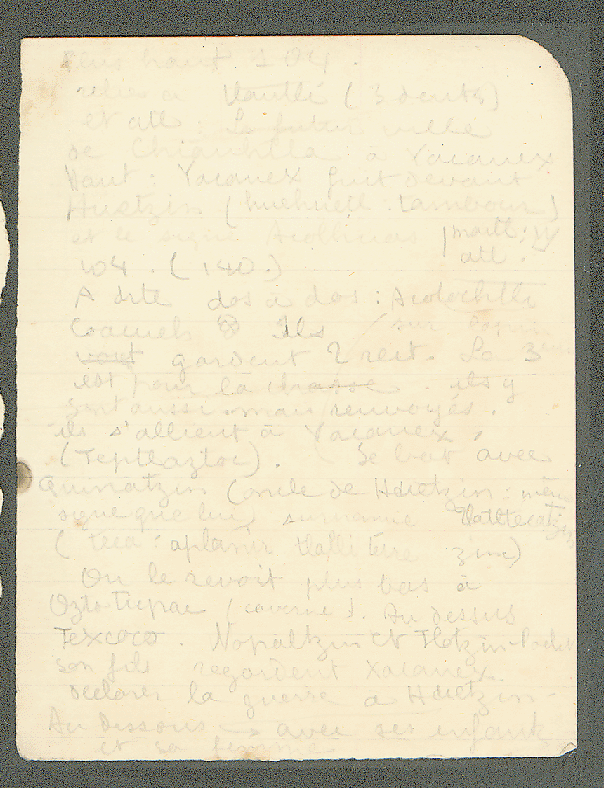 Plus haut 104.
relié à Nauhtli (3 dents)
et atl : La future ville
de Chiautla : à Yacanex
Haut : Yacanex fuit devant
Huetzin (huehuetl tambour)
et le signe Acolhuas (maitl : atl.
104. (140.)
A dte dos à dos : Acotochtli
Coacuech ils
vont gardent 2 rest. Le 3
est pour la chasse. ils y
sont aussi renvoyés.
ils s'allient à Yacanex,
(Tepetlaztoc). Se bat avec
Quinatzin (oncle de Huetzin : même
signe que lui) surnommé
(teca : aplanir tlalli terre tzin)
On le revoit plus bas à
Oztoticpac (caverne). Au dessus
Texcoco. Nopaltzin et Tlotzin-Pochotl
son fils regardent Yacanex
déclarer la guerre à Huetzin -
Au dessous avec ses enfants
et sa femme